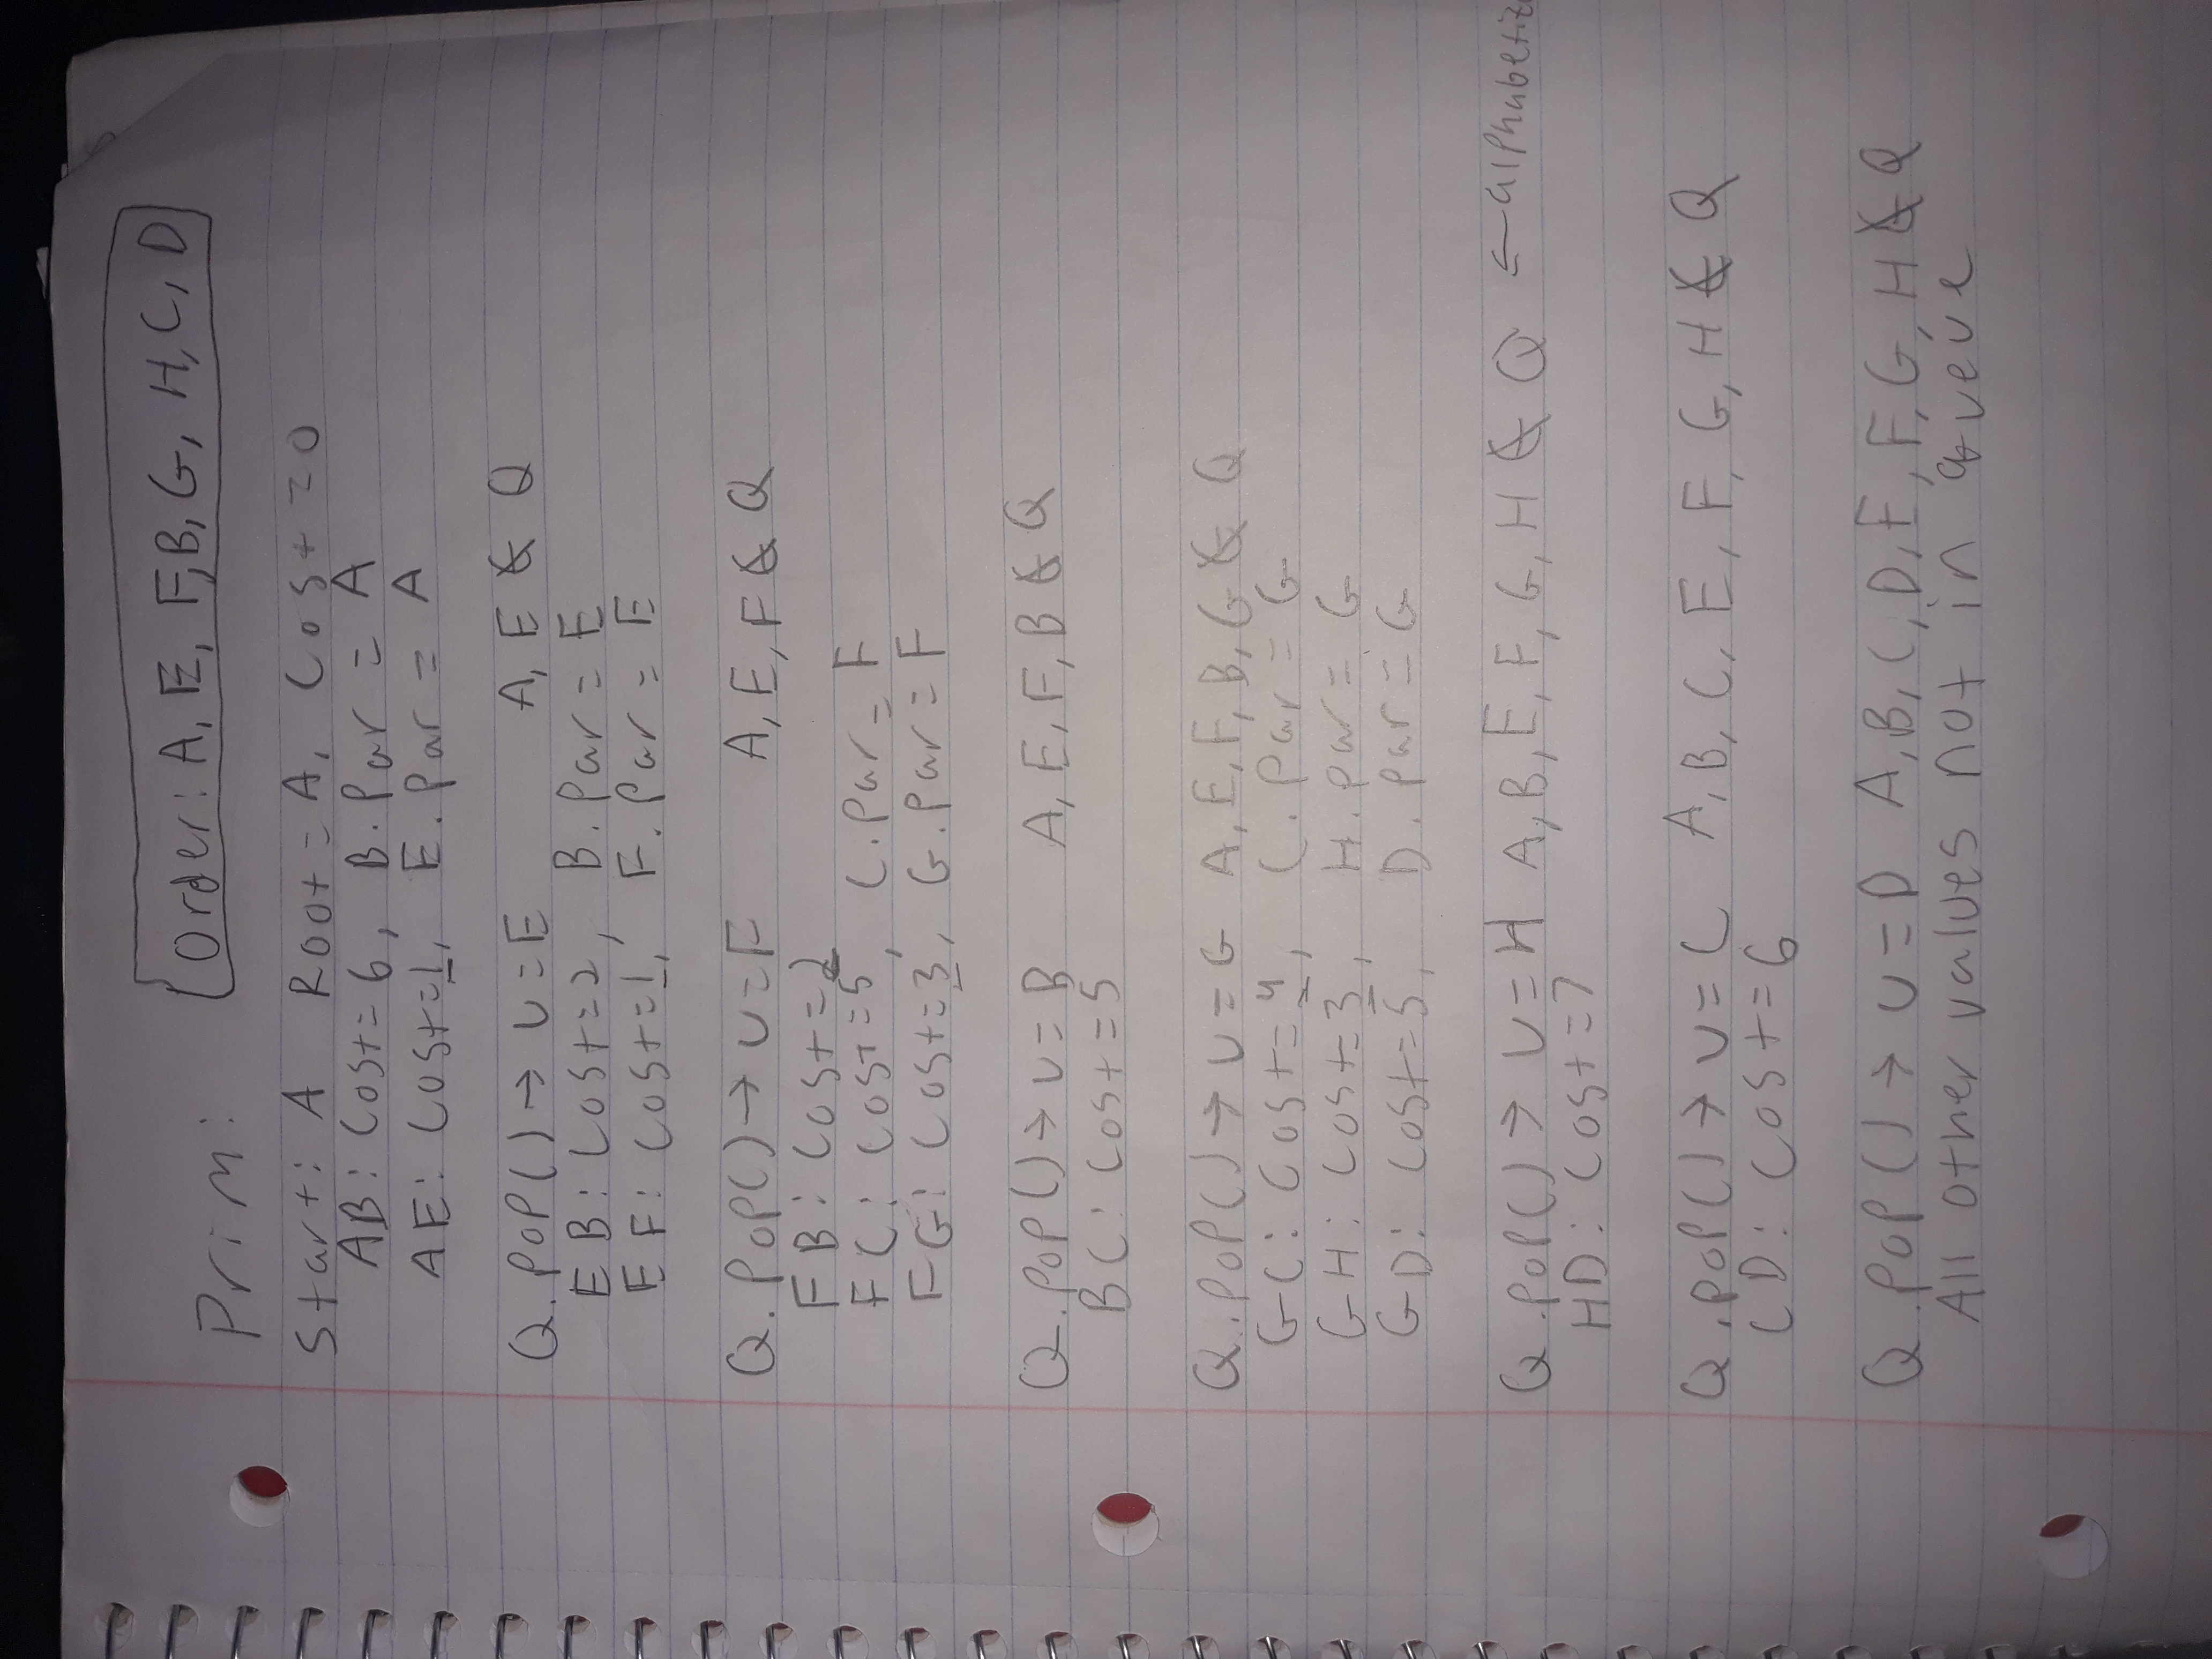 Order: A, E, F, B, G, H, C, D
Prim:
Start: A Root = A, Cost = 0
AB: Cost = 6, B. Par = A
AE: Cost = 1, E. Par = A
Q. POP() → U = E A, E ∉ Q
EB: Cost = 2, B. Par = E
EF: Cost = 1, F. Par = E
Q. POP() → U = F A, E, F ∉ Q
FB: Cost = 2
FC: Cost = 5, C. Par = F
FG: Cost = 3, G. Par = F
Q. POP() → U = B A, E, F, B ∉ Q
BC: Cost = 5
Q. POP() → U = G A, E, F, B, G ∉ Q
GC: Cost = 4, C. Par = G
GH: Cost = 3, H. par = G
GD: Cost = 5, D. par = G
Q. POP() → U = H A, B, E, F, G, H ∉ Q ←
HD: Cost = 7
Q. POP() → U = C A, B, C, E, F, G, H ∉ Q
CD: Cost = 6
Q. POP() → U = D A, B, C, D, E, F, G, H ∉ Q
All other values not in queue